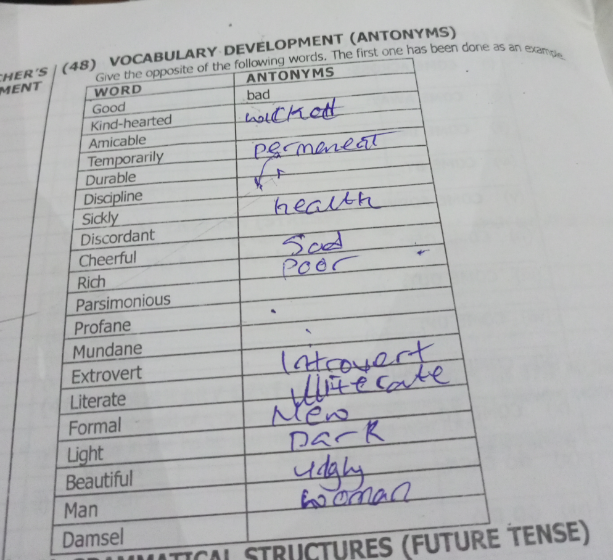 CHER'S
MENT
(48) VOCABULARY DEVELOPMENT (ANTONYMS)
Give the opposite of the following words. The first one has been done as an example.
WORD ANTONYMS
Good bad
Kind-hearted wicked
Amicable
Temporarily permenent
Durable
Discipline
Sickly health
Discordant
Cheerful Sad
Rich Poor
Parsimonious
Profane
Mundane
Extrovert Introvert
Literate Illiterate
Formal New
Light Dark
Beautiful Udgly
Man Woman
Damsel
GRAMMATICAL STRUCTURES (FUTURE TENSE)